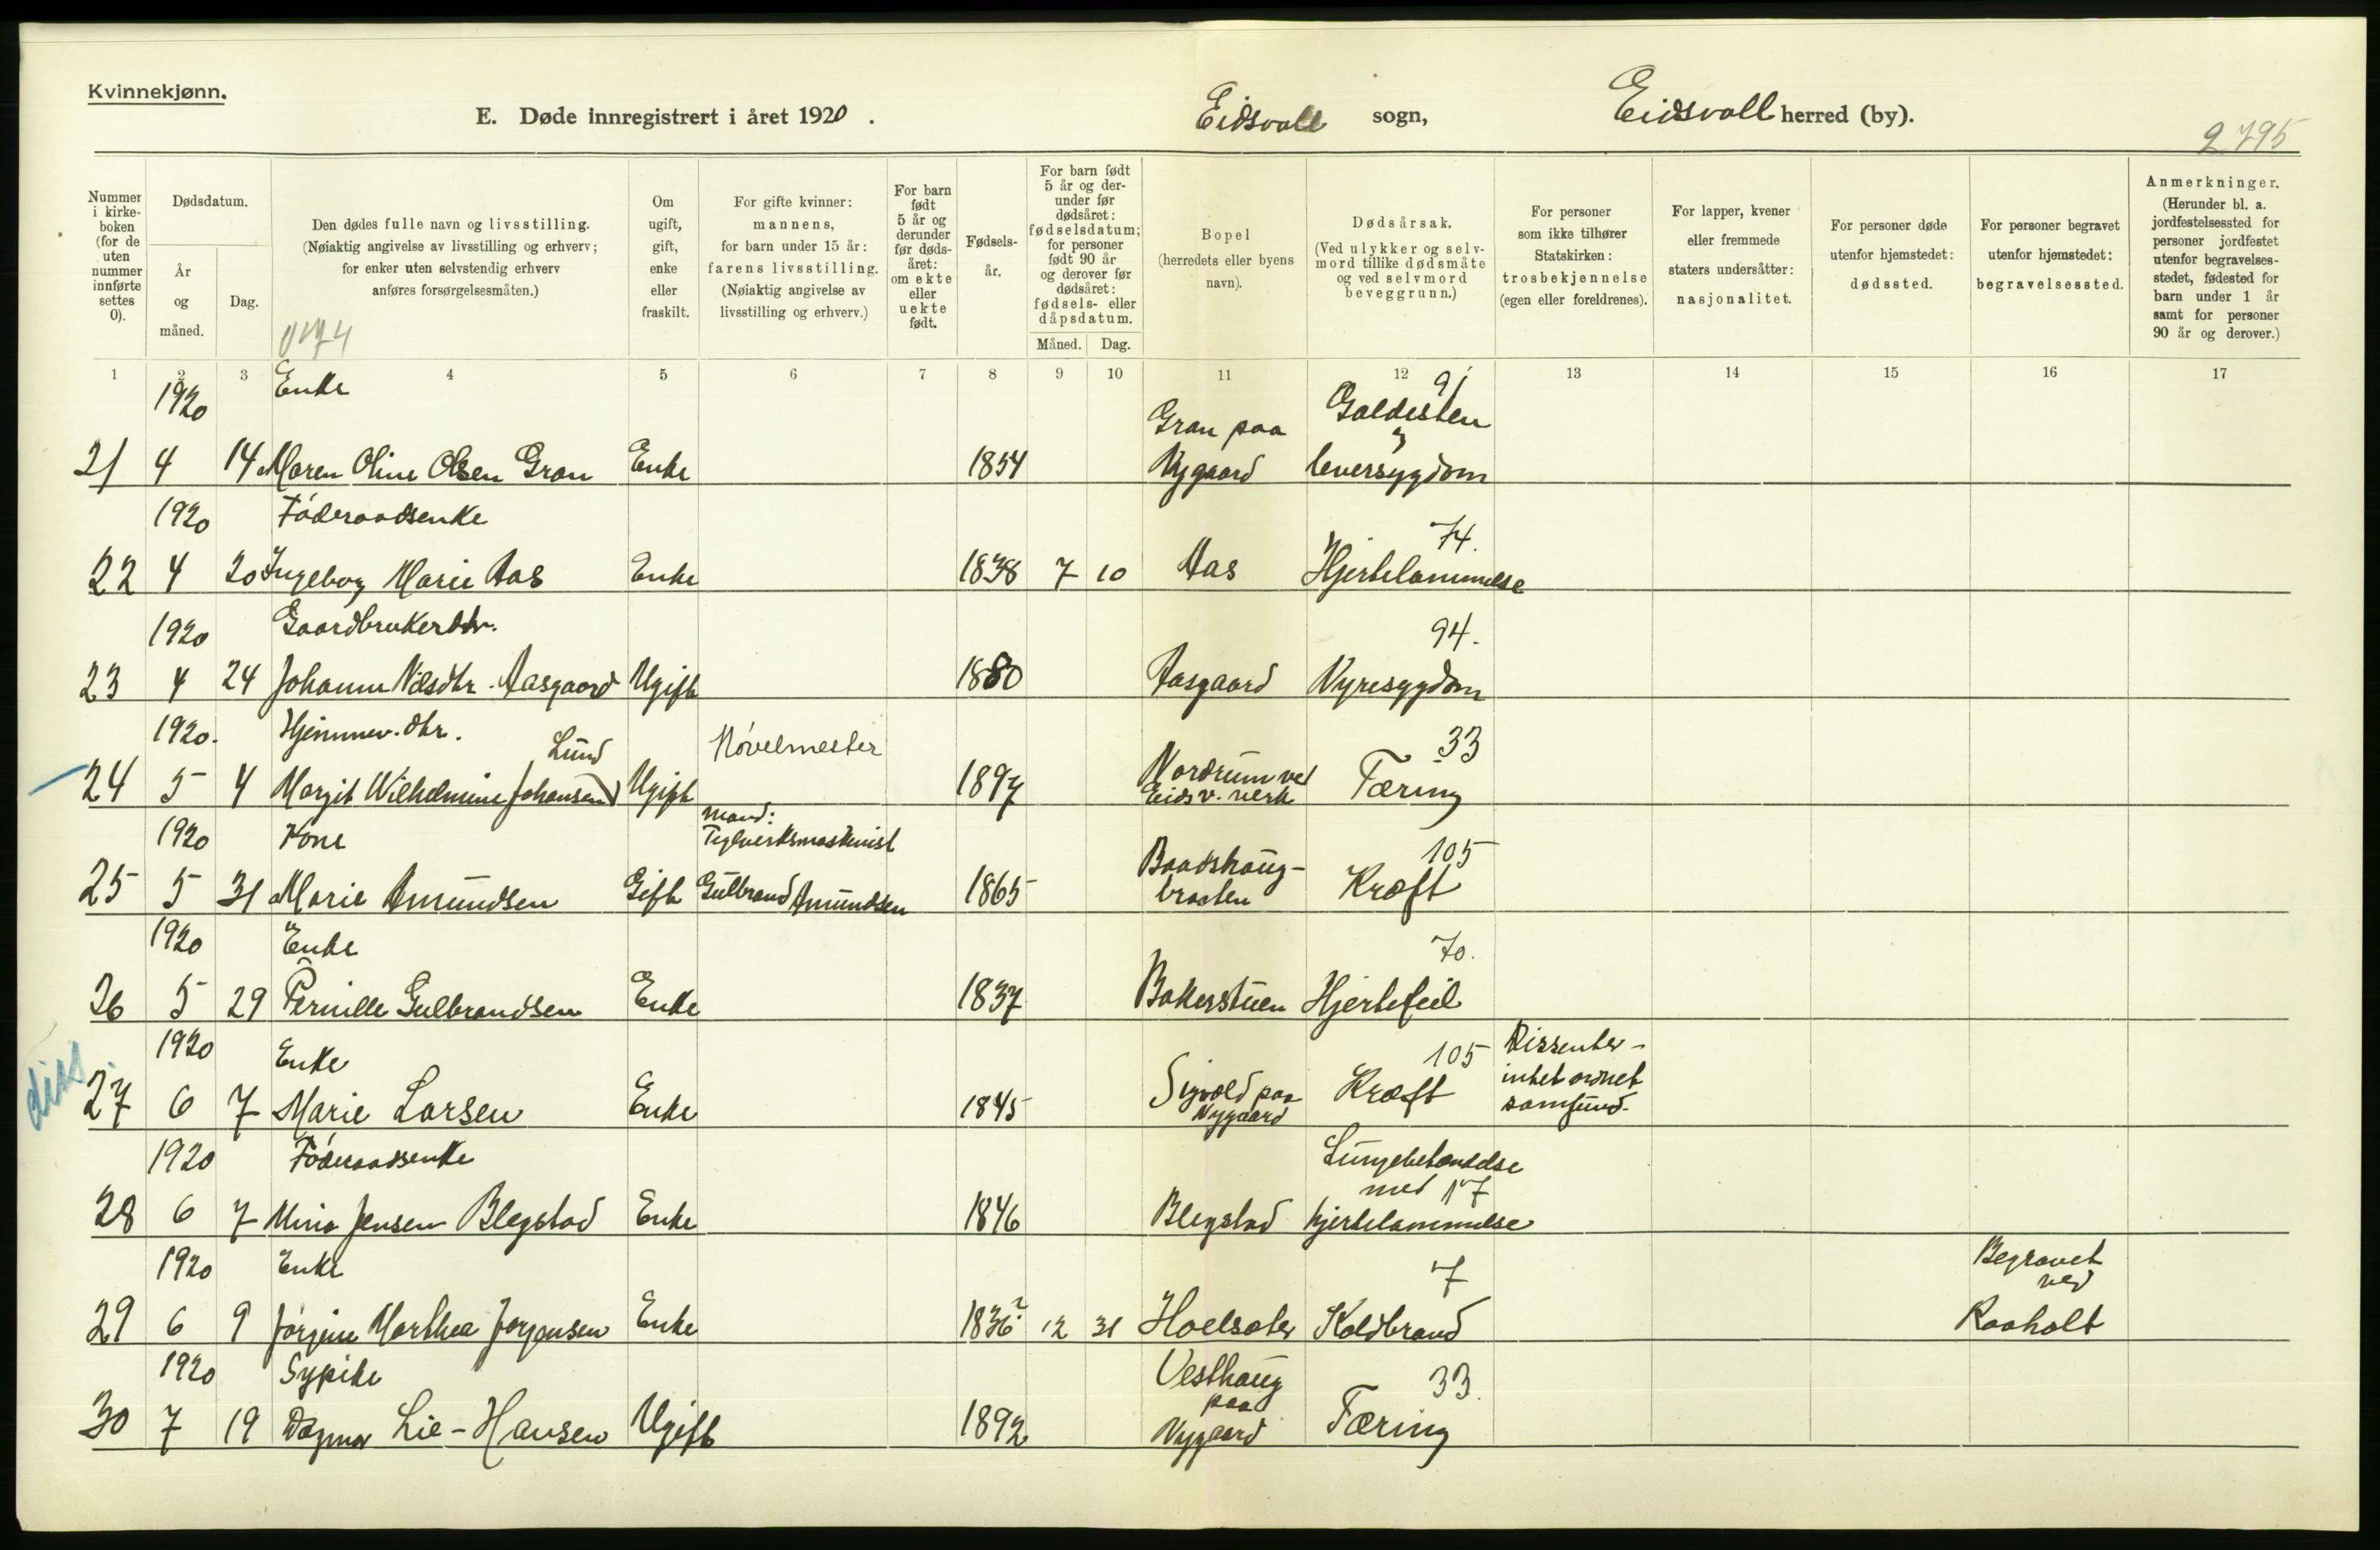 Kvinnekjønn.
E. Døde innregistrert i året 1920.
Eidsvoll sogn,
Eidsvoll herred (by).
2795
Nummer i kirke-boken (for de uten nummer innførte settes 0).
Dødsdatum.
År og måned.
Dag.
Den dødes fulle navn og livsstilling.
(Nøiaktig angivelse av livsstilling og erhverv;
for enker uten selvstendig erhverv
anføres forsørgelsesmåten.)
Om ugift, gift, enke eller fraskilt.
For gifte kvinner:
mannens,
for barn under 15 år:
farens livsstilling.
(Nøiaktig angivelse av
livsstilling og erhverv.)
For barn født 5 år og derunder før døds-året: om ekte eller uekte født.
Fødsels-år.
For barn født 5 år og der-under før dødsåret: fødselsdatum; for personer født 90 år og derover før dødsåret: fødsels- eller dåpsdatum.
Måned. Dag.
Bopel
(herredets eller byens
navn).
Dødsårsak.
(Ved ulykker og selv-
mord tillike dødsmåte
og ved selvmord
beveggrunn.)
For personer
som ikke tilhører
Statskirken:
trosbekjennelse
(egen eller foreldrenes).
For lapper, kvener
eller fremmede
staters undersåtter:
nasjonalitet.
For personer døde
utenfor hjemstedet:
dødssted.
For personer begravet
utenfor hjemstedet:
begravelsessted.
Anmerkninger.
(Herunder bl. a.
jordfestelsessted for
personer jordfestet
utenfor begravelses-
stedet, fødested for
barn under 1 år
samt for personer
90 år og derover.)
1 2 3 4 5 6 7 8 9 10 11 12 13 14 15 16 17
1920 Enke Gran paa Galdesten 91
21 4 14 Maren Oline Olsen Gran Enke 1854 Nygaard leversygdom
1920 Føderaadsenke 74.
22 4 20 Ingeborg Marie Aas Enke 1838 7 10 Aas Hjertelammelse
1920 Gaardbrukerdtr. 94.
23 4 24 Johanne Nilsdtr. Aasgaard Ugift 1880 Aasgaard Nyresygdom
1920. Hjemmev. dtr. Lund Høvelmester Nordrum ved 33
24 5 4 Margit Wilhelmine Johansen Ugift 1897 Eidsv. verk Tæring
1920 Kone mand: Teglverksmaskinist Baadshaug- 105
25 5 31 Marie Amundsen Gift Gulbrand Amundsen 1865 braaten Kræft
1920 Enke 70.
26 5 29 Pernille Gulbrandsen Enke 1837 Bakerstuen Hjertefeil
1920 Enke 105 Dissenter -
diss. 27 6 7 Marie Larsen Enke 1845 Sigvold paa Nygaard Kræft intet ordnet samfund.
1920 Føderaadsenke Lungebetændelse
28 6 7 Mina Jensen Blegstad Enke 1846 Blegstad med 17 hjertelammelse
1920 Enke 7 Begravet ved
29 6 9 Jørgine Marthea Jørgensen Enke 1836? 12 31 Hoelsæter Koldbrand Raaholt
1920 Sypike Vesthaug 33.
30 7 19 Dagmar Lie - Hansen Ugift 1892 paa Nygaard Tæring